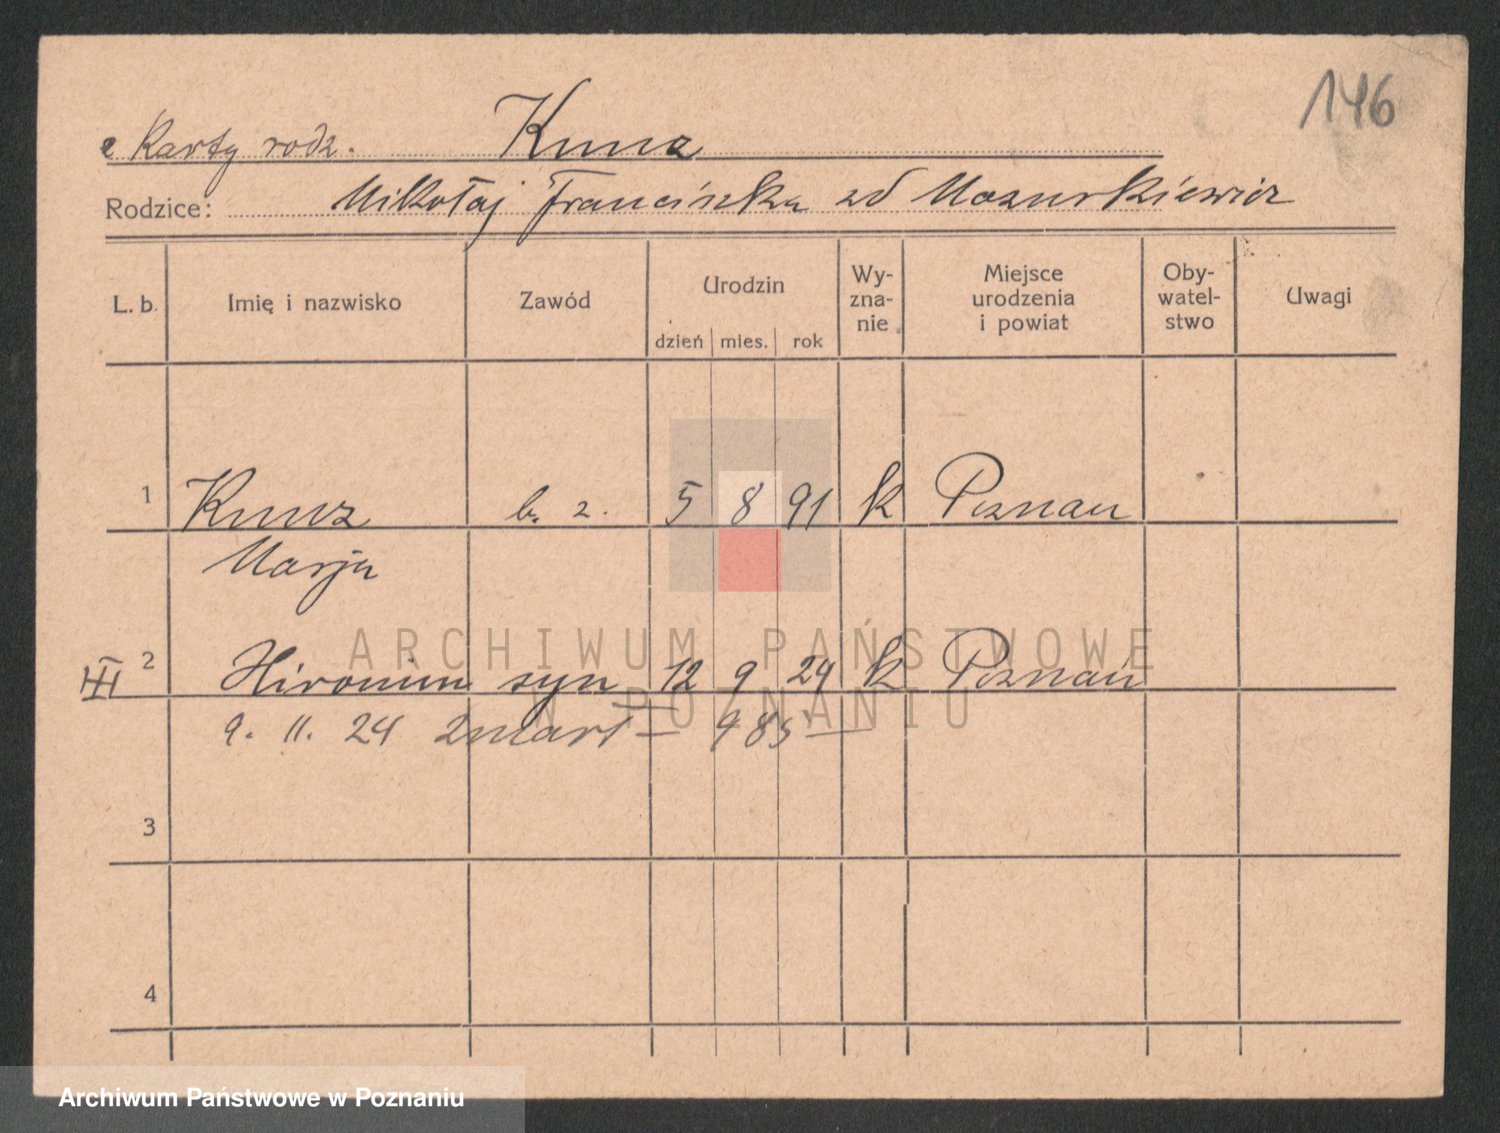 146
z Karty rodz. Kunz
Rodzice: Mikołaj Franciszka zd Mazurkiewicz
L. b. Imię i nazwisko Zawód Urodzin dzień mies. rok Wy-zna-nie Miejsce urodzenia i powiat Oby-watel-stwo Uwagi
1 Kunz b. z. 5 8 91 k Poznań
Marja
III 2 Hironim syn 12 9 24 k Poznań
9. 11. 24 zmarł 985
3
4
ARCHIWUM PAŃSTWOWE
W POZNANIU
Archiwum Państwowe w Poznaniu